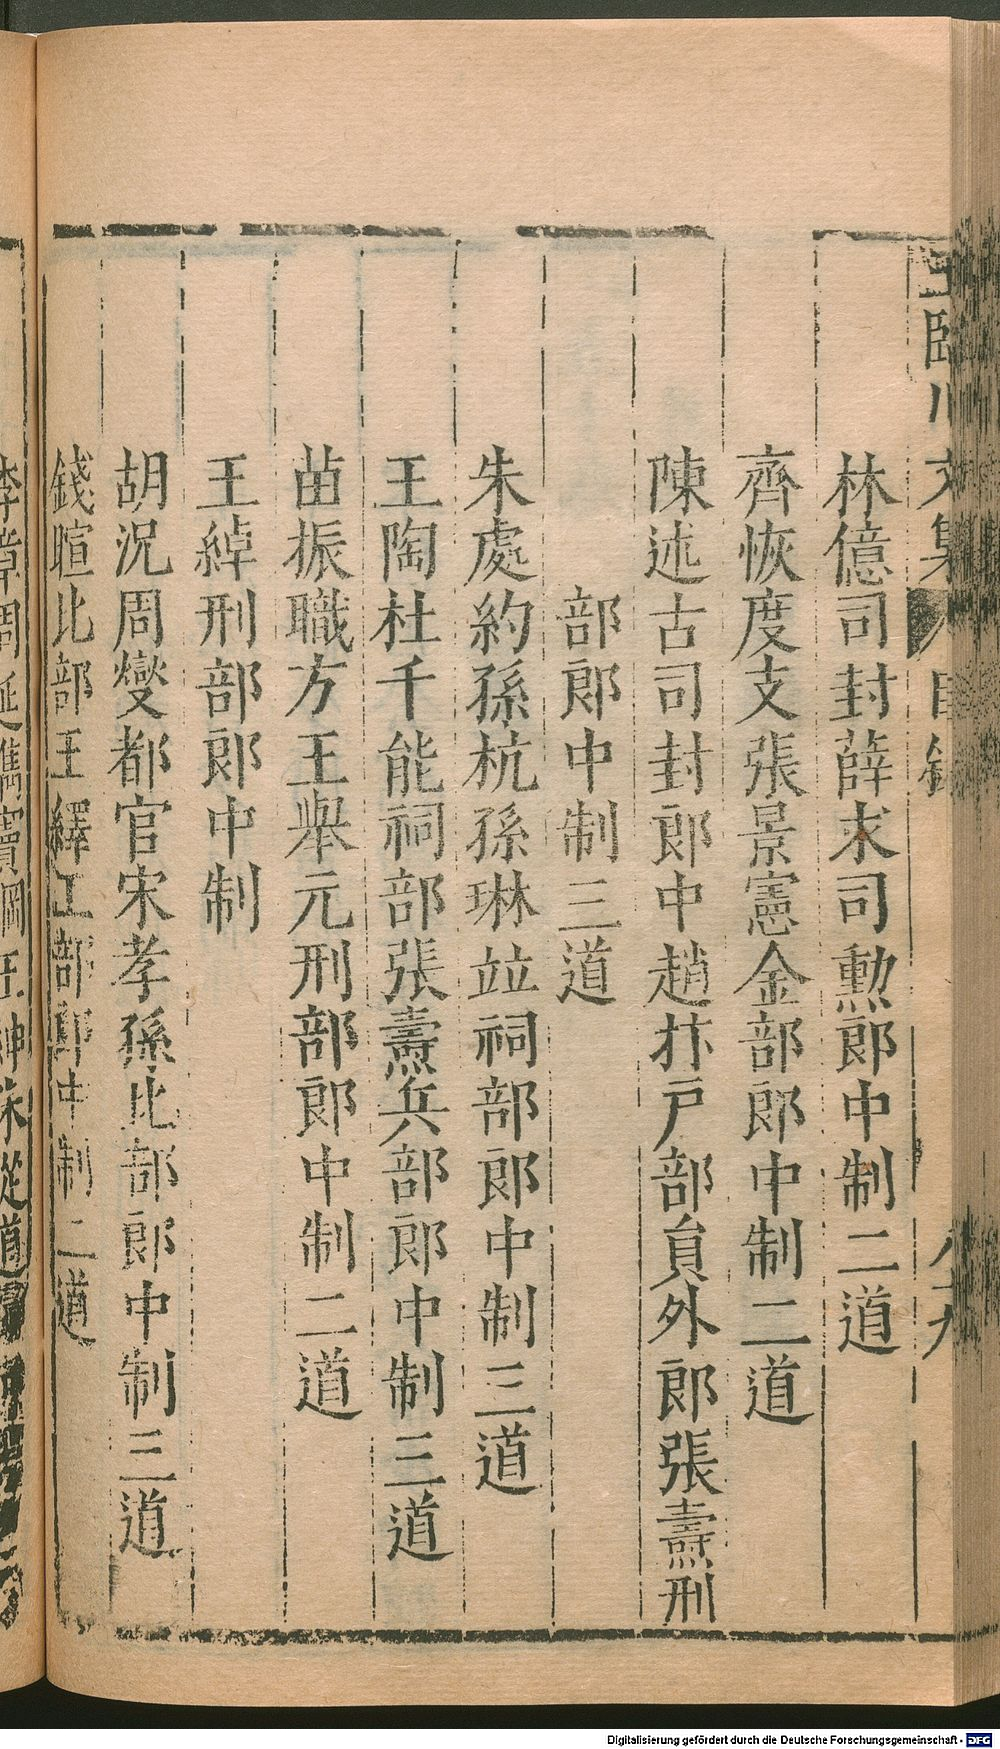 王臨川文集 目錄
林億司封薛求司勲郎中制二道
齊恢度支張景憲金部郎中制二道
陳述古司封郎中趙抃戶部員外郎張燾刑
部郎中制三道
朱處約孫杭孫琳竝祠部郎中制三道
王陶杜千能祠部張燾兵部郎中制三道
苗振職方王舉元刑部郎中制二道
王綽刑部郎中制
胡況周燮都官宋孝孫比部郎中制三道
錢暄比部王繹工部郎中制二道
Digitalisierung gefördert durch die Deutsche Forschungsgemeinschaft - DFG